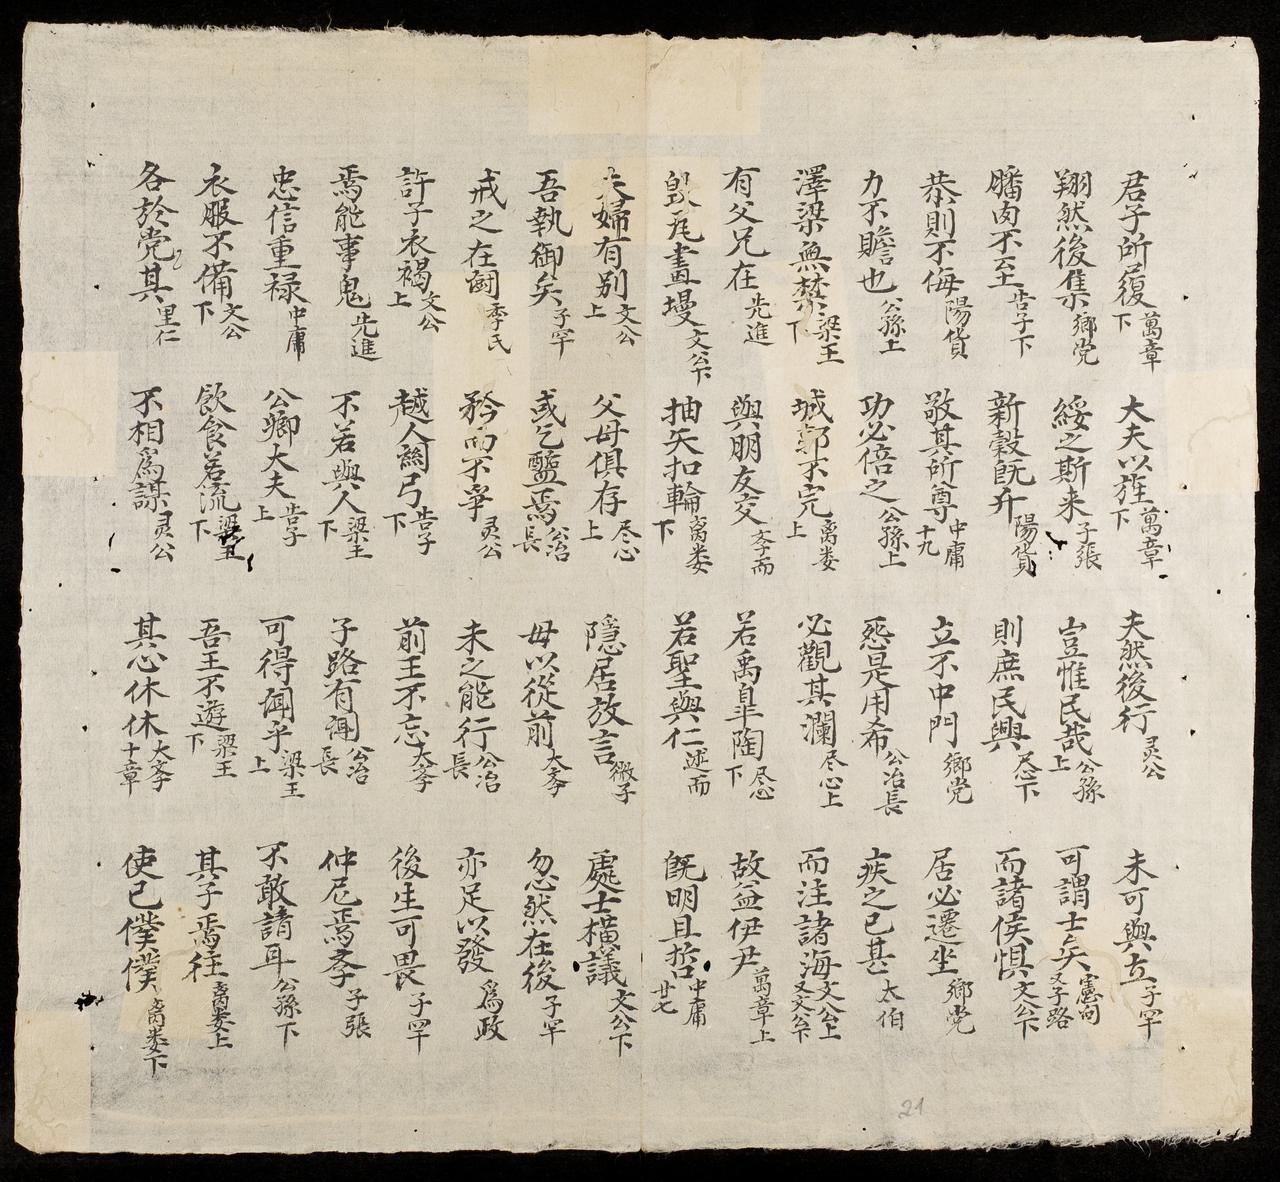 君子所履萬章下 大夫以旌萬章下 夫然後行灵公 未可與立子罕
翔然後集鄉党 綏之斯来子張 豈惟民哉公孫上 可謂士矣憲问又子路
膰肉不至告子下 新穀既升陽貨 則庶民興尽心下 而諸侯惧文公下
恭則不侮陽貨 敬其所尊中庸十九 立不中門鄉党 居必遷坐鄉党
力不贍也公孫上 功必倍之公孫上 怨是用希公冶長 疾之已甚太伯
澤梁無禁梁王下 城郭不完离娄上 必觀其瀾尽心上 而注諸海文公上又文公下
有父兄在先進 與朋友交斈而 若禹皐陶尽心下 故益伊尹萬章上
毀瓦畫墁文公下 抽矢扣輪离娄下 若聖與仁述而 既明且哲中庸廿七
夫婦有别文公上 父母俱存尽心上 隱居放言微子 處士橫議文公下
吾執御矣子罕 或乞醯焉公冶長 毋以從前大斈 忽然在後子罕
戒之在鬪季氏 矜而不爭灵公 未之能行公冶長 亦足以發爲政
許子衣褐文公上 越人関弓告子下 前王不忘大斈 後生可畏子罕
焉能事鬼先進 不若與人梁王下 子路有聞公冶長 仲尼焉斈子張
忠信重禄中庸 公卿大夫告子上 可得聞乎梁王上 不敢請耳公孫下
衣服不備文公下 飲食若流梁王下 吾王不遊梁王下 其子焉往离娄上
各於党其里仁 不相爲謀灵公 其心休休大斈十章 使已僕僕离娄下
21